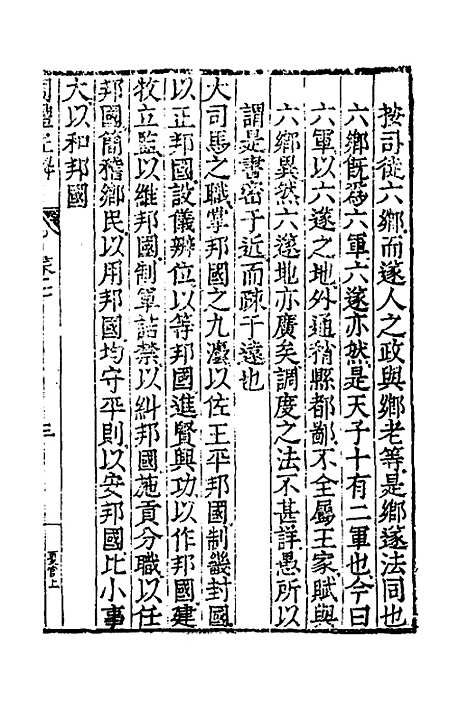 按司徒六鄉而遂人之政與鄉老等是鄉遂法同也
六鄉既爲六軍六遂亦然是天子十有二軍也今曰
六軍以六遂之地外通稍縣都鄙不全屬王家賦與
六鄉異然六遂地亦廣矣調度之法不甚詳愚所以
謂是書密于近而疎于遠也
大司馬之職掌邦國之九灋以佐王平邦國制畿封國
以正邦國設儀辨位以等邦國進賢興功以作邦國建
牧立監以維邦國制軍詰禁以糾邦國施貢分職以任
邦國簡稽鄉民以用邦國均守平則以安邦國比小事
大以和邦國
夏官上